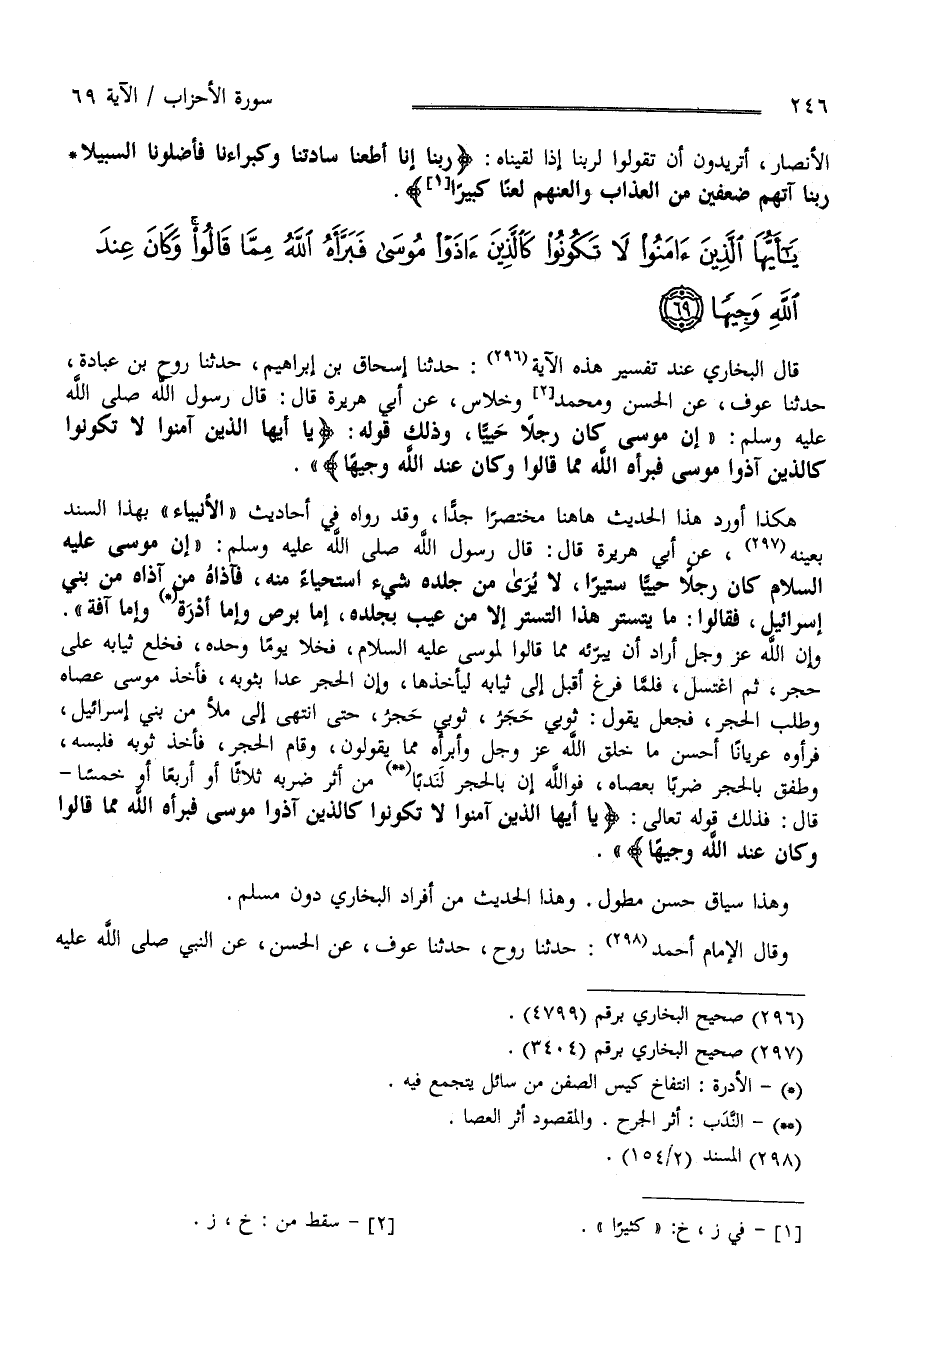 ٢٤٦ سورة الأحزاب / الآية ٦٩
الأنصار ، أتريدون أن تقولوا لربنا إذا لقيناه : ﴿ربنا إنا أطعنا سادتنا وكبراءنا فأضلونا السبيلا *
ربنا آتهم ضعفين من العذاب والعنهم لعنًا كبيرًا[١]﴾ .
يَـٰٓأَيُّهَا ٱلَّذِينَ ءَامَنُوا۟ لَا تَكُونُوا۟ كَٱلَّذِينَ ءَاذَوْا۟ مُوسَىٰ فَبَرَّأَهُ ٱللَّهُ مِمَّا قَالُوا۟ ۚ وَكَانَ عِندَ
ٱللَّهِ وَجِيهًا ٦٩
قال البخاري عند تفسير هذه الآية(٢٩٦) : حدثنا إسحاق بن إبراهيم ، حدثنا روح بن عبادة ،
حدثنا عوف ، عن الحسن ومحمد[٢] وخلاس ، عن أبي هريرة قال : قال رسول اللَّه صلى اللَّه
عليه وسلم : « إن موسى كان رجلًا حَيِيًّا ، وذلك قوله : ﴿يا أيها الذين آمنوا لا تكونوا
كالذين آذوا موسى فبرأه اللَّه مما قالوا وكان عند اللَّه وجيهًا﴾» .
هكذا أورد هذا الحديث هاهنا مختصرًا جدًّا ، وقد رواه في أحاديث «الأنبياء» بهذا السند
بعينه(٢٩٧) ، عن أبي هريرة قال : قال رسول اللَّه صلى اللَّه عليه وسلم : «إن موسى عليه
السلام كان رجلًا حييًّا ستيرًا ، لا يُرَىٰ من جلده شيء استحياءً منه ، فآذاهُ من آذاه من بني
إسرائيل ، فقالوا : ما يتستر هذا التستر إلا من عيب بجلده ، إما برص وإما أدْرَة(*) وإما آفة» .
وإن اللَّه عز وجل أراد أن يبرّئه مما قالوا لموسى عليه السلام ، فخلا يومًا وحده ، فخلع ثيابه على
حجر ، ثم اغتسل ، فلمَّا فرغ أقبل إلى ثيابه ليأخذها ، وإن الحجر عدا بثوبه ، فأخذ موسى عصاه
وطلب الحجر ، فجعل يقول : ثوبي حَجَرُ ، ثوبي حَجرُ ، حتى انتهى إلى ملأ من بني إسرائيل ،
فرأوه عريانًا أحسن ما خلق اللَّه عز وجل وأبرأه مما يقولون ، وقام الحجر ، فأخذ ثوبه فلبسه ،
وطفق بالحجر ضربًا بعصاه ، فواللَّه إن بالحجر لَنَدبًا(**) من أثر ضربه ثلاثًا أو أربعًا أو خمسًا –
قال : فذلك قوله تعالى : ﴿يا أيها الذين آمنوا لا تكونوا كالذين آذوا موسى فبرأه اللَّه مما قالوا
وكان عند اللَّه وجيهًا﴾» .
وهذا سياق حسن مطول . وهذا الحديث من أفراد البخاري دون مسلم .
وقال الإمام أحمد(٢٩٨) : حدثنا روح ، حدثنا عوف ، عن الحسن ، عن النبي صلى اللَّه عليه
(٢٩٦) صحيح البخاري برقم (٤٧٩٩) .
(٢٩٧) صحيح البخاري برقم (٣٤٠٤) .
(*) – الأدرة : انتفاخ كيس الصفن من سائل يتجمع فيه .
(**) – النَّدَب : أثر الجرح . والمقصود أثر العصا .
(٢٩٨) المسند (١٥٤/٢) .
[١] – في ز ، خ : « كثيرًا » . [٢] – سقط من : خ ، ز .